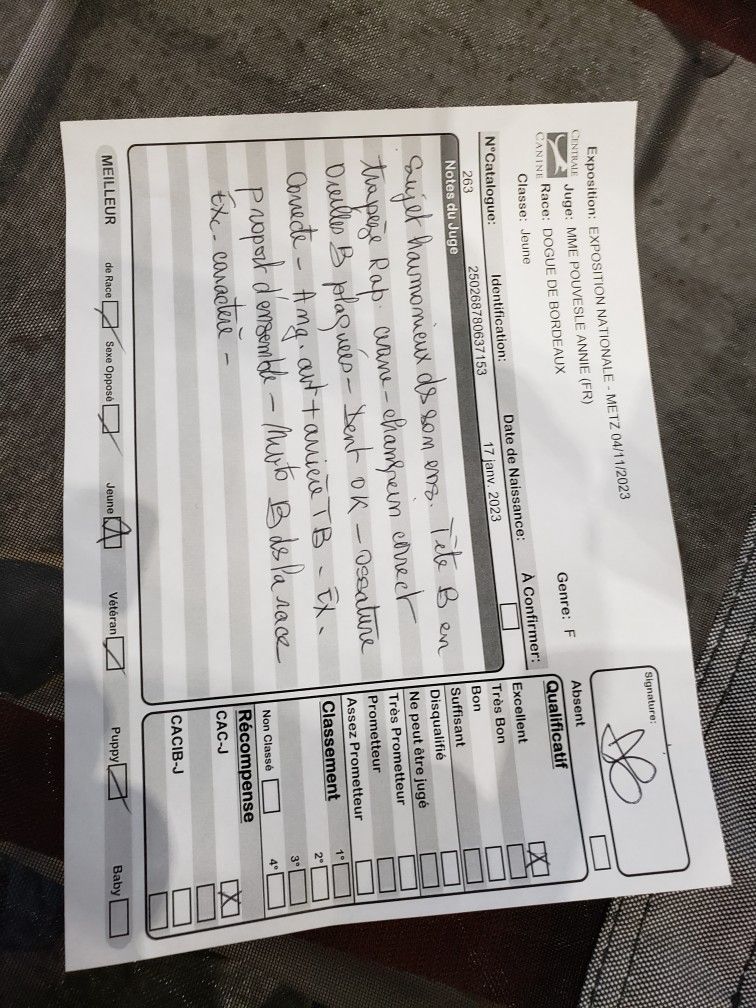 Exposition: EXPOSITION NATIONALE - METZ 04/11/2023
CENTRALE CANINE
Juge: MME POUVESLE ANNIE (FR)
Race: DOGUE DE BORDEAUX
Genre: F
Classe: Jeune
Signature:
N°Catalogue: Identification: Date de Naissance: À Confirmer:
263 250268780637153 17 janv. 2023
Notes du Juge
Sujet harmonieux ds son ens. Tête B en
trapèze Rap. crane - chanfrein correct
Oreilles B plaquées - Dent OK - ossature
Correcte - Ang. avt + arrière TB - Ex.
proport d'ensemble - B de la race
Exc. caractère -
Absent
Qualificatif
Excellent
Très Bon
Bon
Suffisant
Disqualifié
Ne peut être jugé
Très Prometteur
Prometteur
Assez Prometteur
Classement
1°
2°
3°
Non Classé 4°
Récompense
CAC-J
CACIB-J
MEILLEUR de Race Sexe Opposé Jeune Vétéran Puppy Baby